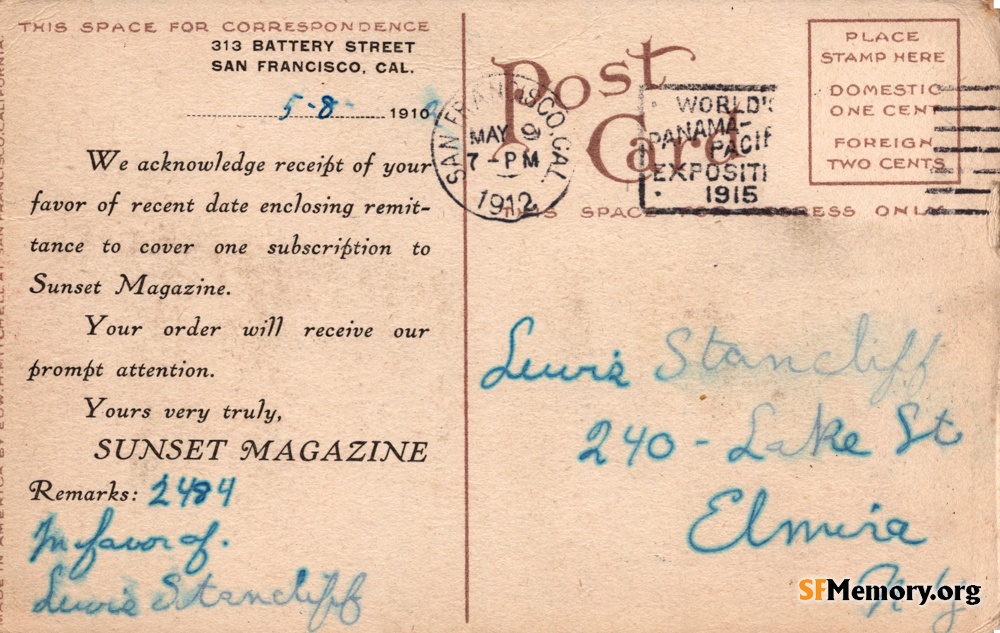 THIS SPACE FOR CORRESPONDENCE
313 BATTERY STREET
SAN FRANCISCO, CAL.
5-8- 1910
We acknowledge receipt of your
favor of recent date enclosing remit-
tance to cover one subscription to
Sunset Magazine.
Your order will receive our
prompt attention.
Yours very truly,
SUNSET MAGAZINE
Remarks: 2484
In favor of.
Lewis Stancliff
MADE IN AMERICA BY EDW. H. MITCHELL AT SAN FRANCISCO, CALIFORNIA
Post Card
SAN FRANCISCO, CAL.
MAY 9
7-PM
1912
WORLD'S
PANAMA-
PACIF
EXPOSITI
1915
PLACE
STAMP HERE
DOMESTIC
ONE CENT
FOREIGN
TWO CENTS
THIS SPACE FOR ADDRESS ONLY
Lewis Stancliff
240 - Lake St
Elmira
N. Y
SFMemory.org